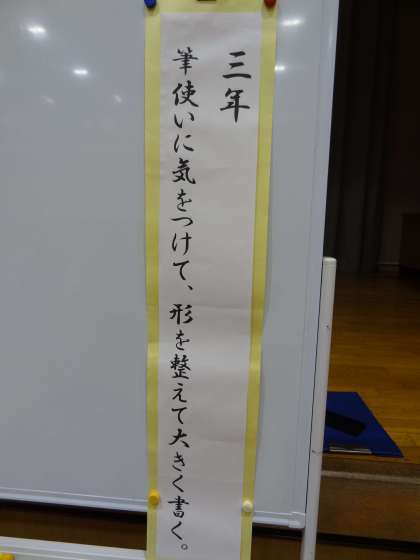 三年
筆使いに気をつけて、形を整えて大きく書く。